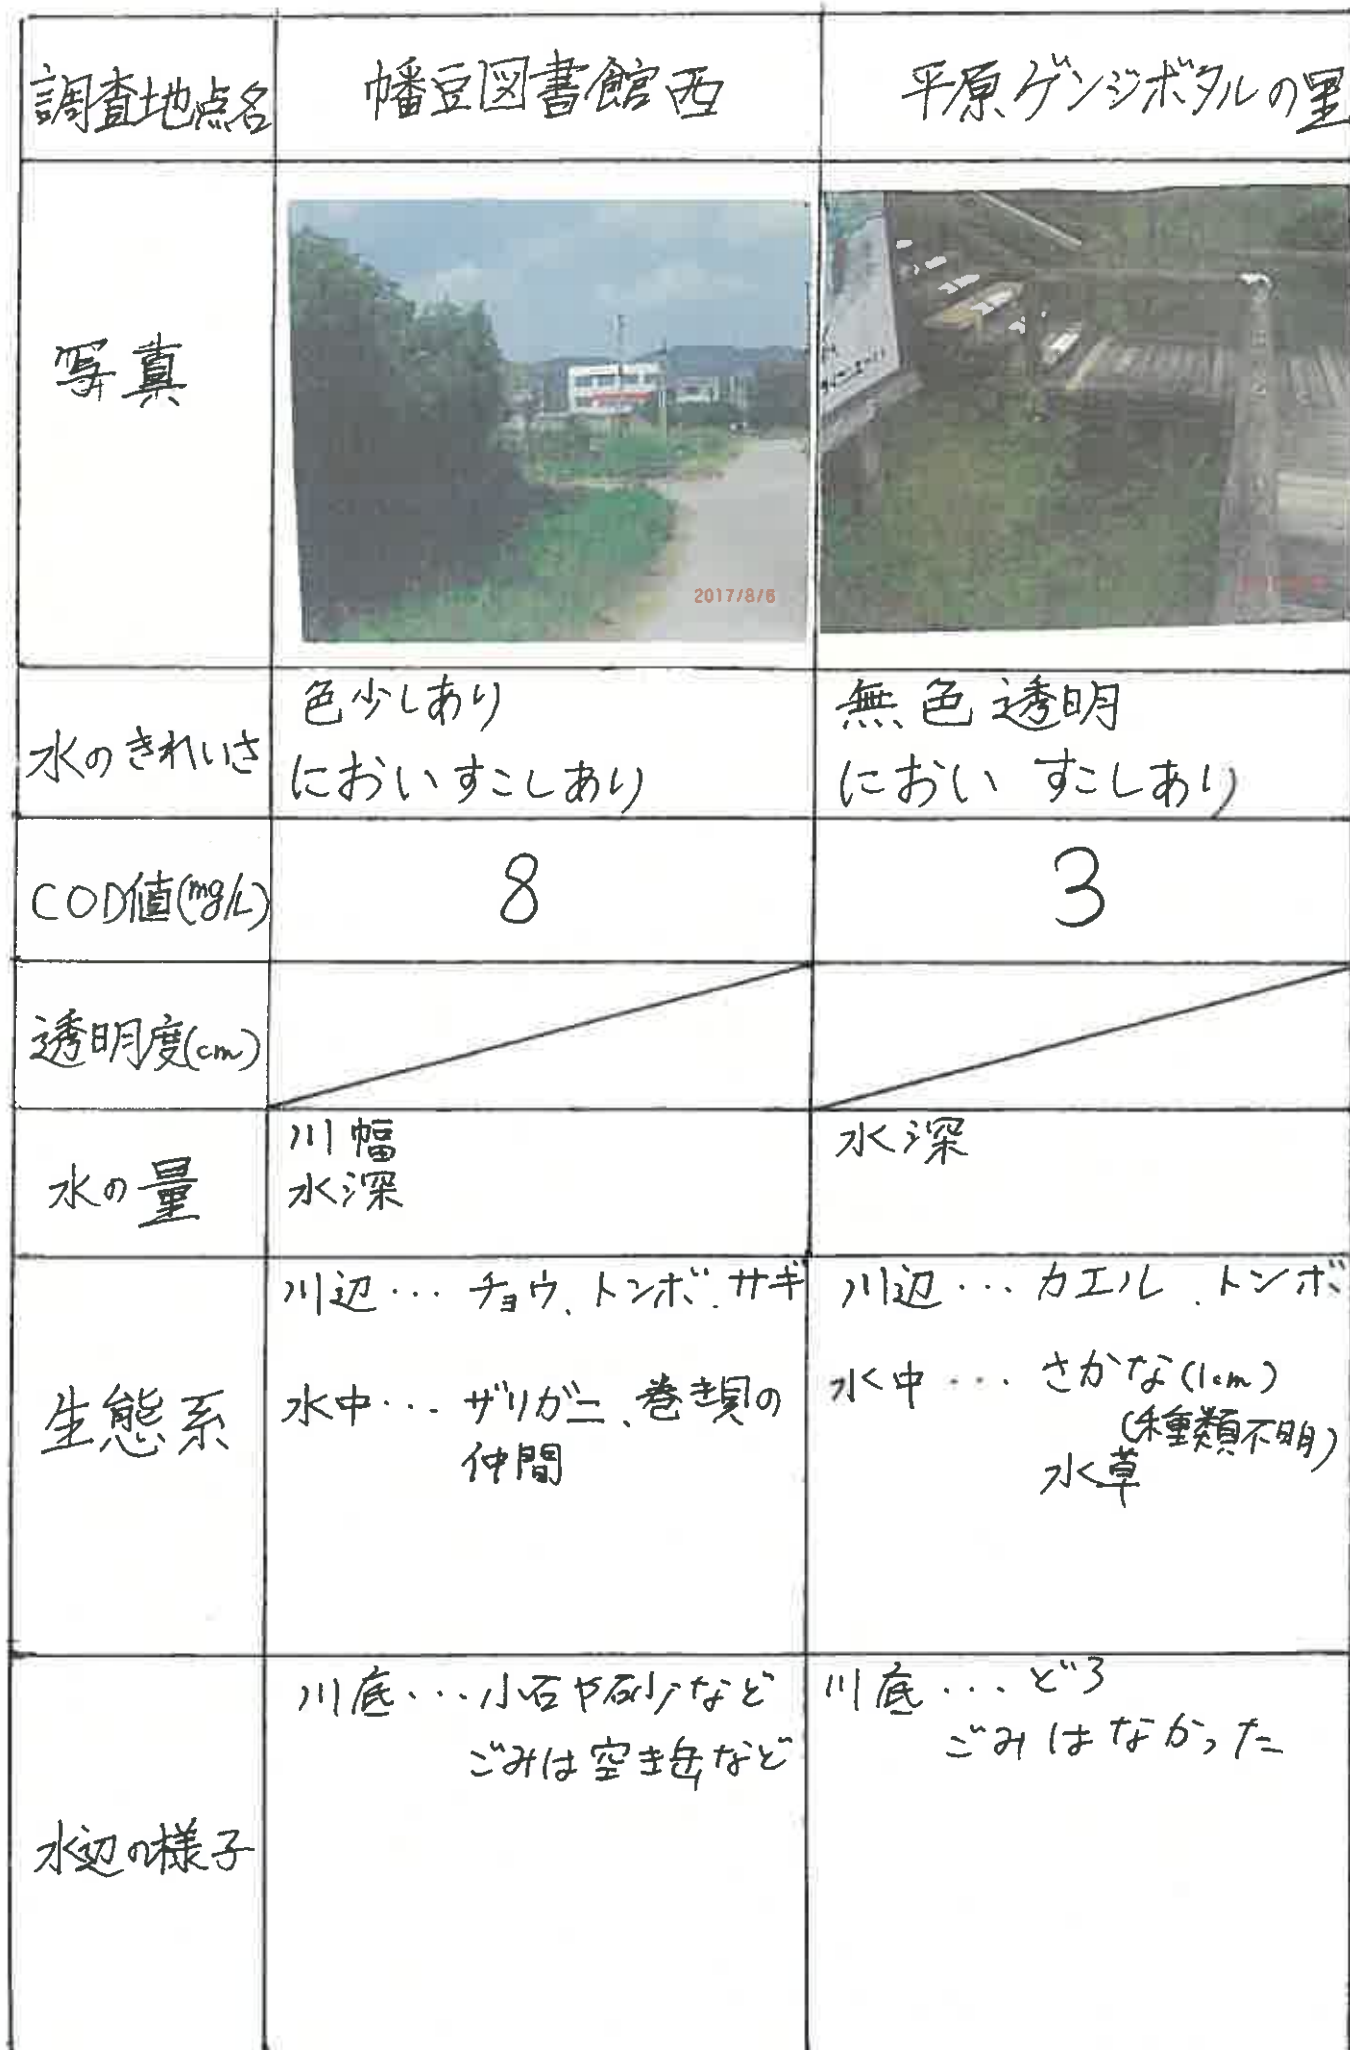 調査地点名
幡豆図書館西
平原ゲンジボタルの里
写真
2017/8/6
水のきれいさ
色少しあり
においすこしあり
無色透明
におい すこしあり
COD値(mg/L)
8
3
透明度(cm)
水の量
川幅
水深
水深
生態系
川辺… チョウ、トンボ、サギ
水中… ザリガニ、巻き貝の
仲間
川辺… カエル、トンボ
水中… さかな(1cm)
(種類不明)
水草
水辺の様子
川底…小石や砂など
ごみは空き缶など
川底…どろ
ごみはなかった